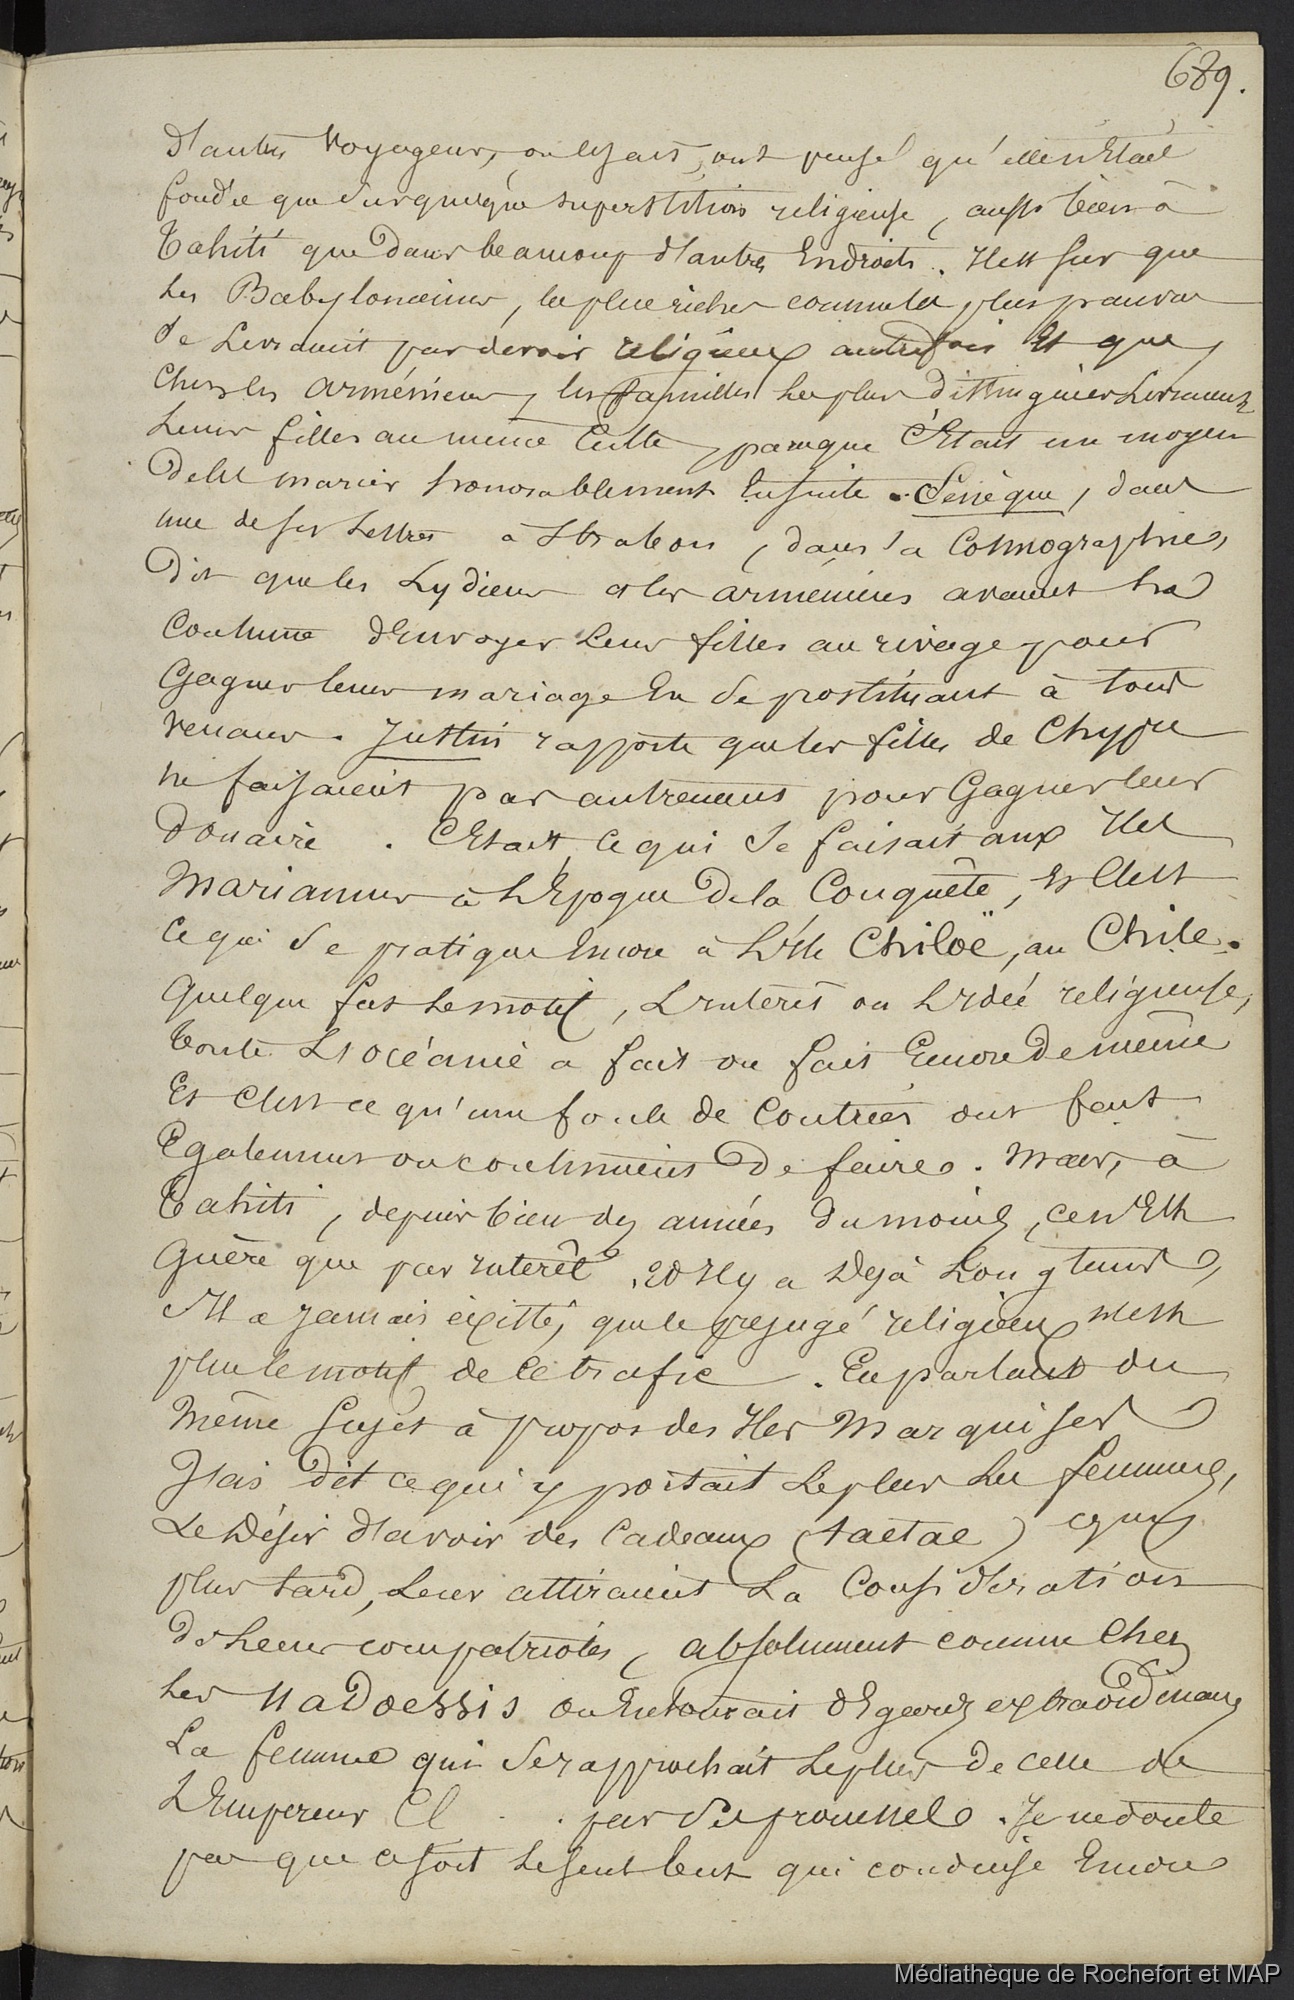 689.
D'autres voyageurs, on le sait, ont pensé qu'elle n'était
fondée que sur quelque superstition religieuse, aussi bien à
Tahiti que dans beaucoup d'autres Endroits. Il est sur que
les Babyloniennes, les plus riches comme les plus pauvres
se livraient par devoir religieux autrefois Et que,
chez les arméniens, les familles les plus distinguées livraient
leurs filles au même culte, parceque C'Etait un moyen
de les marier honorablement Ensuite. Senèque, dans
une de ses Lettres à Strabon, dans sa Cosmographie,
Dit que les Lydiens et les arméniens avaient la
Coutume d'Envoyer leurs filles au rivage pour
Gagner leur mariage En se prostituant à tous
venans. Justin rapporte que les filles de Chypre
ne faisaient pas autrement pour Gagner leur
Douaire. C'Etait ce qui se faisait aux Iles
Mariannes à L'Epoque de la Conquête, Et C'est
Ce qui se pratique Encore à L'Ile Chiloë, au Chile.
Quelque fut le motif, L'interêt ou L'idée religieuse,
Toute L'océanie a fait ou fait Encore de même
Et C'est ce qu'une foule de Contrées ont fait
Egalement ou continuent de faire. Mais, à
Tahiti, depuis bien des années du moins, ce n'Est
Guère que par interêt, Et Il y a Déjà Longtems,
S'Il a jamais existé, que le préjugé religieux n'est
plus le motif de ce trafic. En parlant du
même sujet à propos des Iles Marquises
J'ais dit ce qui y portait le plus les femmes,
Le Désir d'avoir des Cadeaux (taetae) qui,
plus tard, leur attiraient La Considération
de leurs compatriotes, absolument comme Chez
les Nadoessis on Entourait d'Egards extraordinaires
La femme qui se rapprochait le plus de celle de
L'Empereur Cl . . par ses prouesses. Je ne doute
pas que ce soit le seul but qui conduise Encore
Médiathèque de Rochefort et MAP